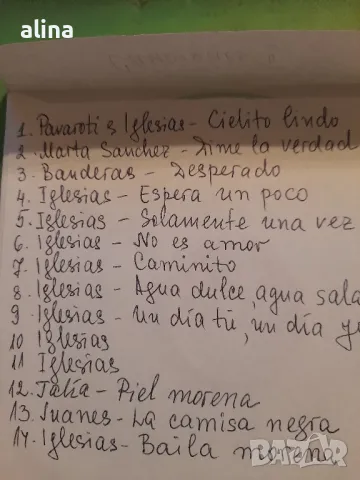 alina
1. Pavaroti & Iglesias - Cielito lindo
2. Marta Sanchez - Dime la verdad
3. Banderas - Desperado
4. Iglesias - Espera un poco
5. Iglesias - Silamente una vez
6. Iglesias - No es amor
7. Iglesias - Caminito
8. Iglesias - Agua dulce, agua sala
9. Iglesias - Un día tú, un día y
10 Iglesias
11 Iglesias
12. Talía - Piel morena
13. Juanes - La camisa negra
14. Iglesias - Baila morena
BAZAR
bg